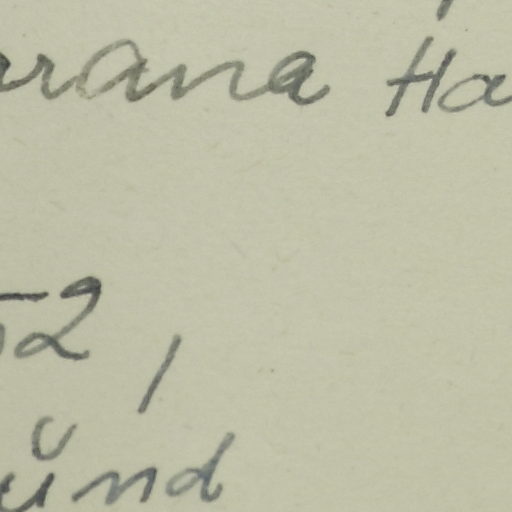 arana Ha
52,
ŭnd